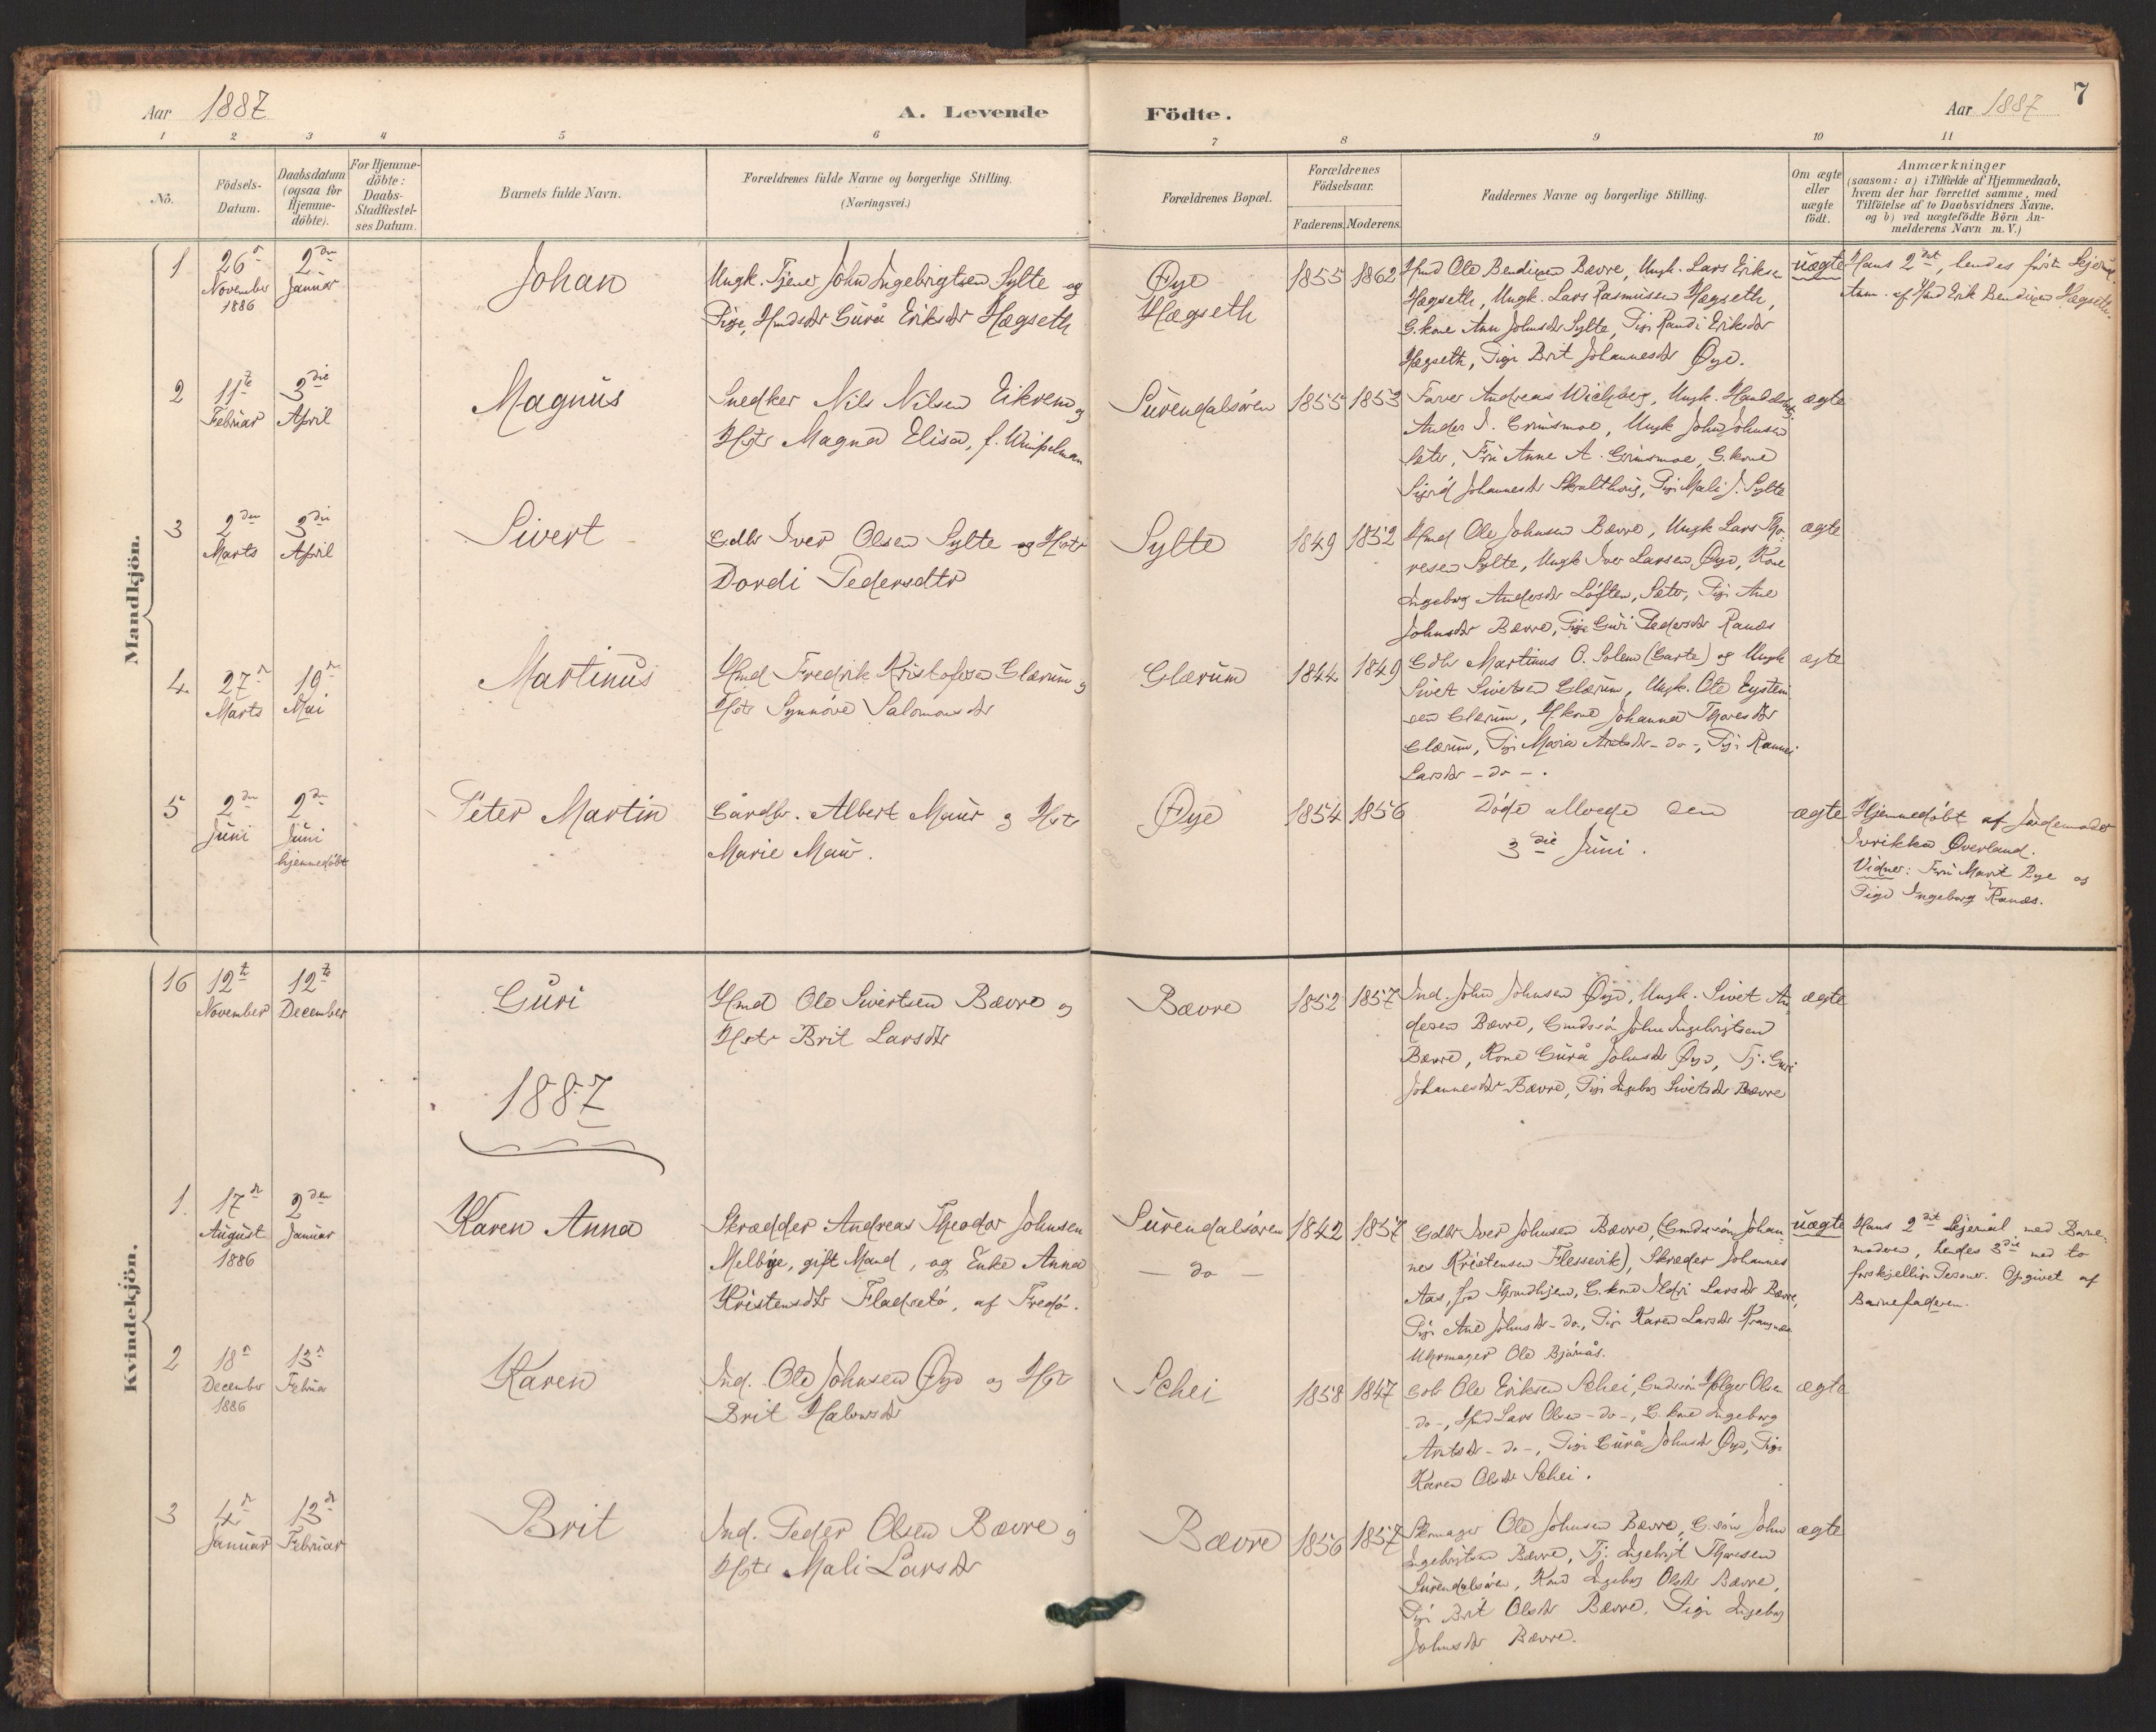 Aar 1887
A. Levende
Födte.
Aar 1887
7
1 2 3 4 5 6 7 8 9 10 11
No.
Födsels-Datum.
Daabsdatum (ogsaa for Hjemme-döbte).
For Hjemme-döbte: Daabs-Stadfæstel-ses Datum.
Barnets fulde Navn.
Forældrenes fulde Navne og borgerlige Stilling.
(Næringsvei.)
Forældrenes Bopæl.
Forældrenes Födselsaar.
Faderens. Moderens.
Faddernes Navne og borgerlige Stilling.
Om ægte eller uægte födt.
Anmærkninger
(saasom: a) i Tilfælde af Hjemmedaab,
hvem der har forrettet samme, med
Tilföielse af to Daabsvidners Navne,
og b) ved uægtefödte Börn An-
melderens Navn m. V.)
Mandkjön.
1
26de November 1886
2den Januar
Johan
Ungk. Tjener John Ingebrigtsen Sylte og
Pige, Hmdsdtr Gurå Eriksdtr Hægseth
Øye
Hægseth
1855 1862
Hmd Ole Bendixen Bævre, Ungk. Lars Eriksen
Hægseth, Ungk. Lars Rasmussen Hægseth,
G.kone Ann Johnsdtr Sylte, Pige Randi Eriksdtr
Hægseth, Pige Brit Johannesdtr Øye.
uægte
Hans 2det, hendes første Lejerm.
Anm. af Hmd Erik Bendixen Hægseth.
2
11te Februar
3die April
Magnus
Snedker Nils Nilsen Eikrem og
Hstr Magna Elisa, f. Wimpelman
Surendalsøren
1855 1853
Farver Andreas Wichberg, Ungk. Handelsbetj.
Anders J. Grimsmoe, Ungk John Johnsen
Sæter, Fru Anne A. Grimsmoe, G.kone
Sigrid Johannesdtr Skralthaug, Pige Mali J. Sylte
ægte
3
2den Marts
3die April
Sivert
Gdbr Iver Olsen Sylte og Hstr
Dordi Pedersdtr
Sylte
1849 1852
Hmd Ole Johnsen Bævre, Ungk Lars Tho-
resen Sylte, Ungk Iver Larsen Øye, Kone
Ingeborg Andersdtr Løften, Sæter, Pige Ane
Johnsdtr Bævre, Pige Guri Pedersdtr Ranæs
ægte
4.
27de Marts
19de Mai
Martinus
Hmd Fredrik Kristofersen Glærum og
Hstr Synnøve Salomonsdtr
Glærum
1844 1849
Gdbr Martinus O. Solem (Garte) og Ungk
Sivert Sivertsen Glærum, Ungk. Ole Eystein
sen Glærum, H.kone Johanna Thoresdtr
Glærum, Pige Maria Arntsdtr - do -, Pige Rannei
Larsdtr - do - .
ægte
5
2den Juni
2den Juni hjemmedøbt
Peter Martin
Gårdbr. Albert Maur og Hstr
Marie Maur.
Øye
1854 1856
Døde allerede den
3die Juni.
ægte
Hjemmedøbt af Jordemoder
Iverikka Øverland.
Vidner: Fru Marit Rye og
Pige Ingeborg Ranæs.
Kvindekjön.
16
12te November
12te December
Guri
Hmd Ole Sivertsen Bævre og
Hstr Brit Larsdtr
Bævre
1852 1857
Ind. John Johnsen Øye, Ungk. Sivert An-
dersen Bævre, Gmdssøn John Ingebrigtsen
Bævre, Kone Gurå Johnsdtr Øye, Tj. Guri
Johannesdtr Bævre, Pige Ingebor Sivertsdtr Bævre
ægte
1887
1.
17de August 1886
2den Januar
Karen Anna
Skrædder Andreas Theodor Johnsen
Melbye, gift Mand, og Enke Anna
Kristensdtr Fladsetø, af Fredø.
Surendalsøren
- do -
1842 1857
Gdbr Iver Johnsen Bævre, (Gmdssøn Johan-
nes Kristensen Flessevik), Skræder Johannes
Aas, fra Throndhjem, G.kone Ildri Larsdtr Bævre,
Pige Ane Johnsdtr - do -, Pige Karen Larsdtr Kvangnæs
Uhrmager Ole Bjørnås.
uægte
Hans 2det Lejermål med Barne-
moderen, hendes 3die med to
forskjellige Personer. Opgivet af
Barnefaderen.
2
18de December 1886
13de Februar
Karen
Ind. Ole Johnsen Øye og Hstr
Brit Halvorsdtr
Schei
1858 1847
Gdbr Ole Eriksen Schei, Gmdssøn Holger Olsen
- do -, Hmd Lars Olsen - do -, G.kone Ingeborg
Arntsdtr - do -, Pige Gurå Johnsdtr Øye, Pige
Karen Olsdtr Schei.
ægte
3
4de Januar
13de Februar
Brit
Ind. Peder Olsen Bævre og
Hstr Mali Larsdtr
Bævre
1856 1857
Skomager Ole Johnsen Bævre, G.søn John
Ingebrigtsen Bævre, Tj. Ingebrigt Thoresen
Surendalsøren, Kone Ingebor Olsdtr Bævre,
Pige Brit Olsdtr Bævre, Pige Ingebor
Johnsdtr Bævre.
ægte